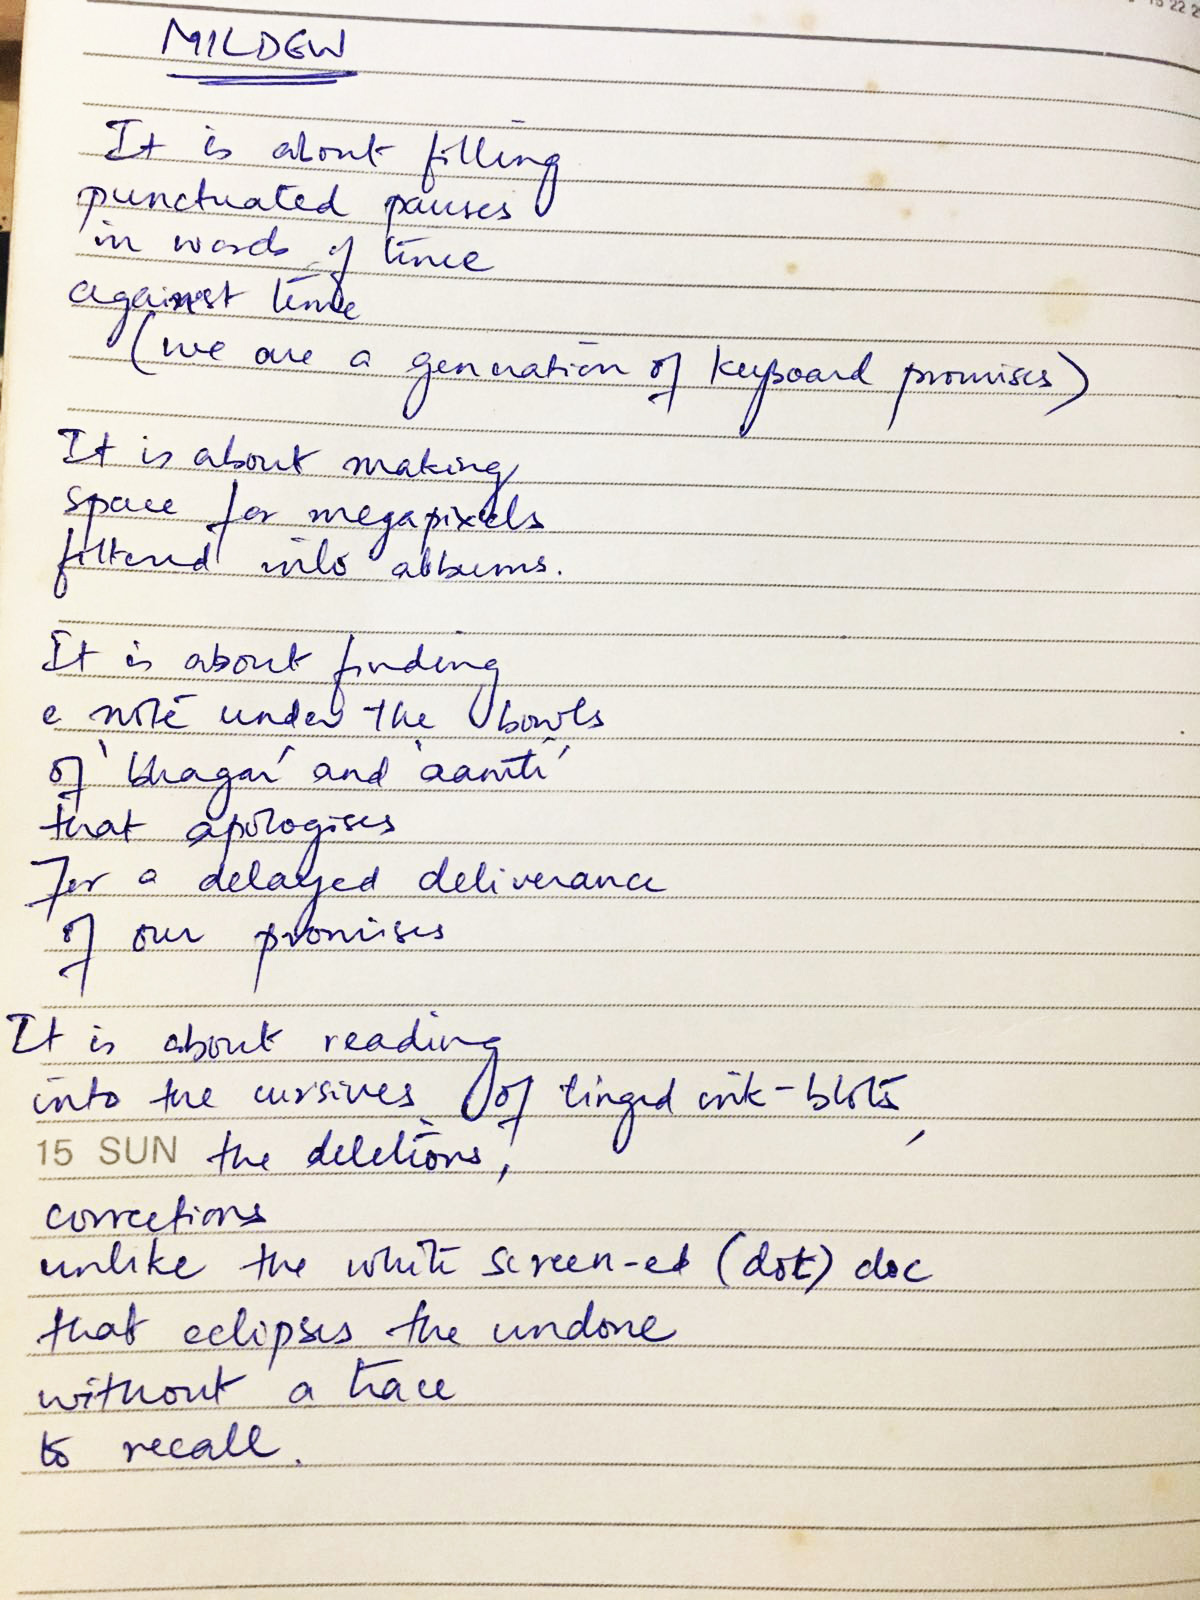 15 22 2
MILDEW
It is about filling
punctuated pauses
in words of time
against time
(we are a generation of keyboard promises)
It is about making
space for megapixels
filtered into albums.
It is about finding
a note under the bowls
of 'bhagar' and 'aamti'
that apologises
For a delayed deliverance
of our promises
It is about reading
into the cursives of tinged ink-blots,
15 SUN the deletions,
corrections
unlike the white screen-ed (dot) doc
that eclipses the undone
without a trace
to recall.